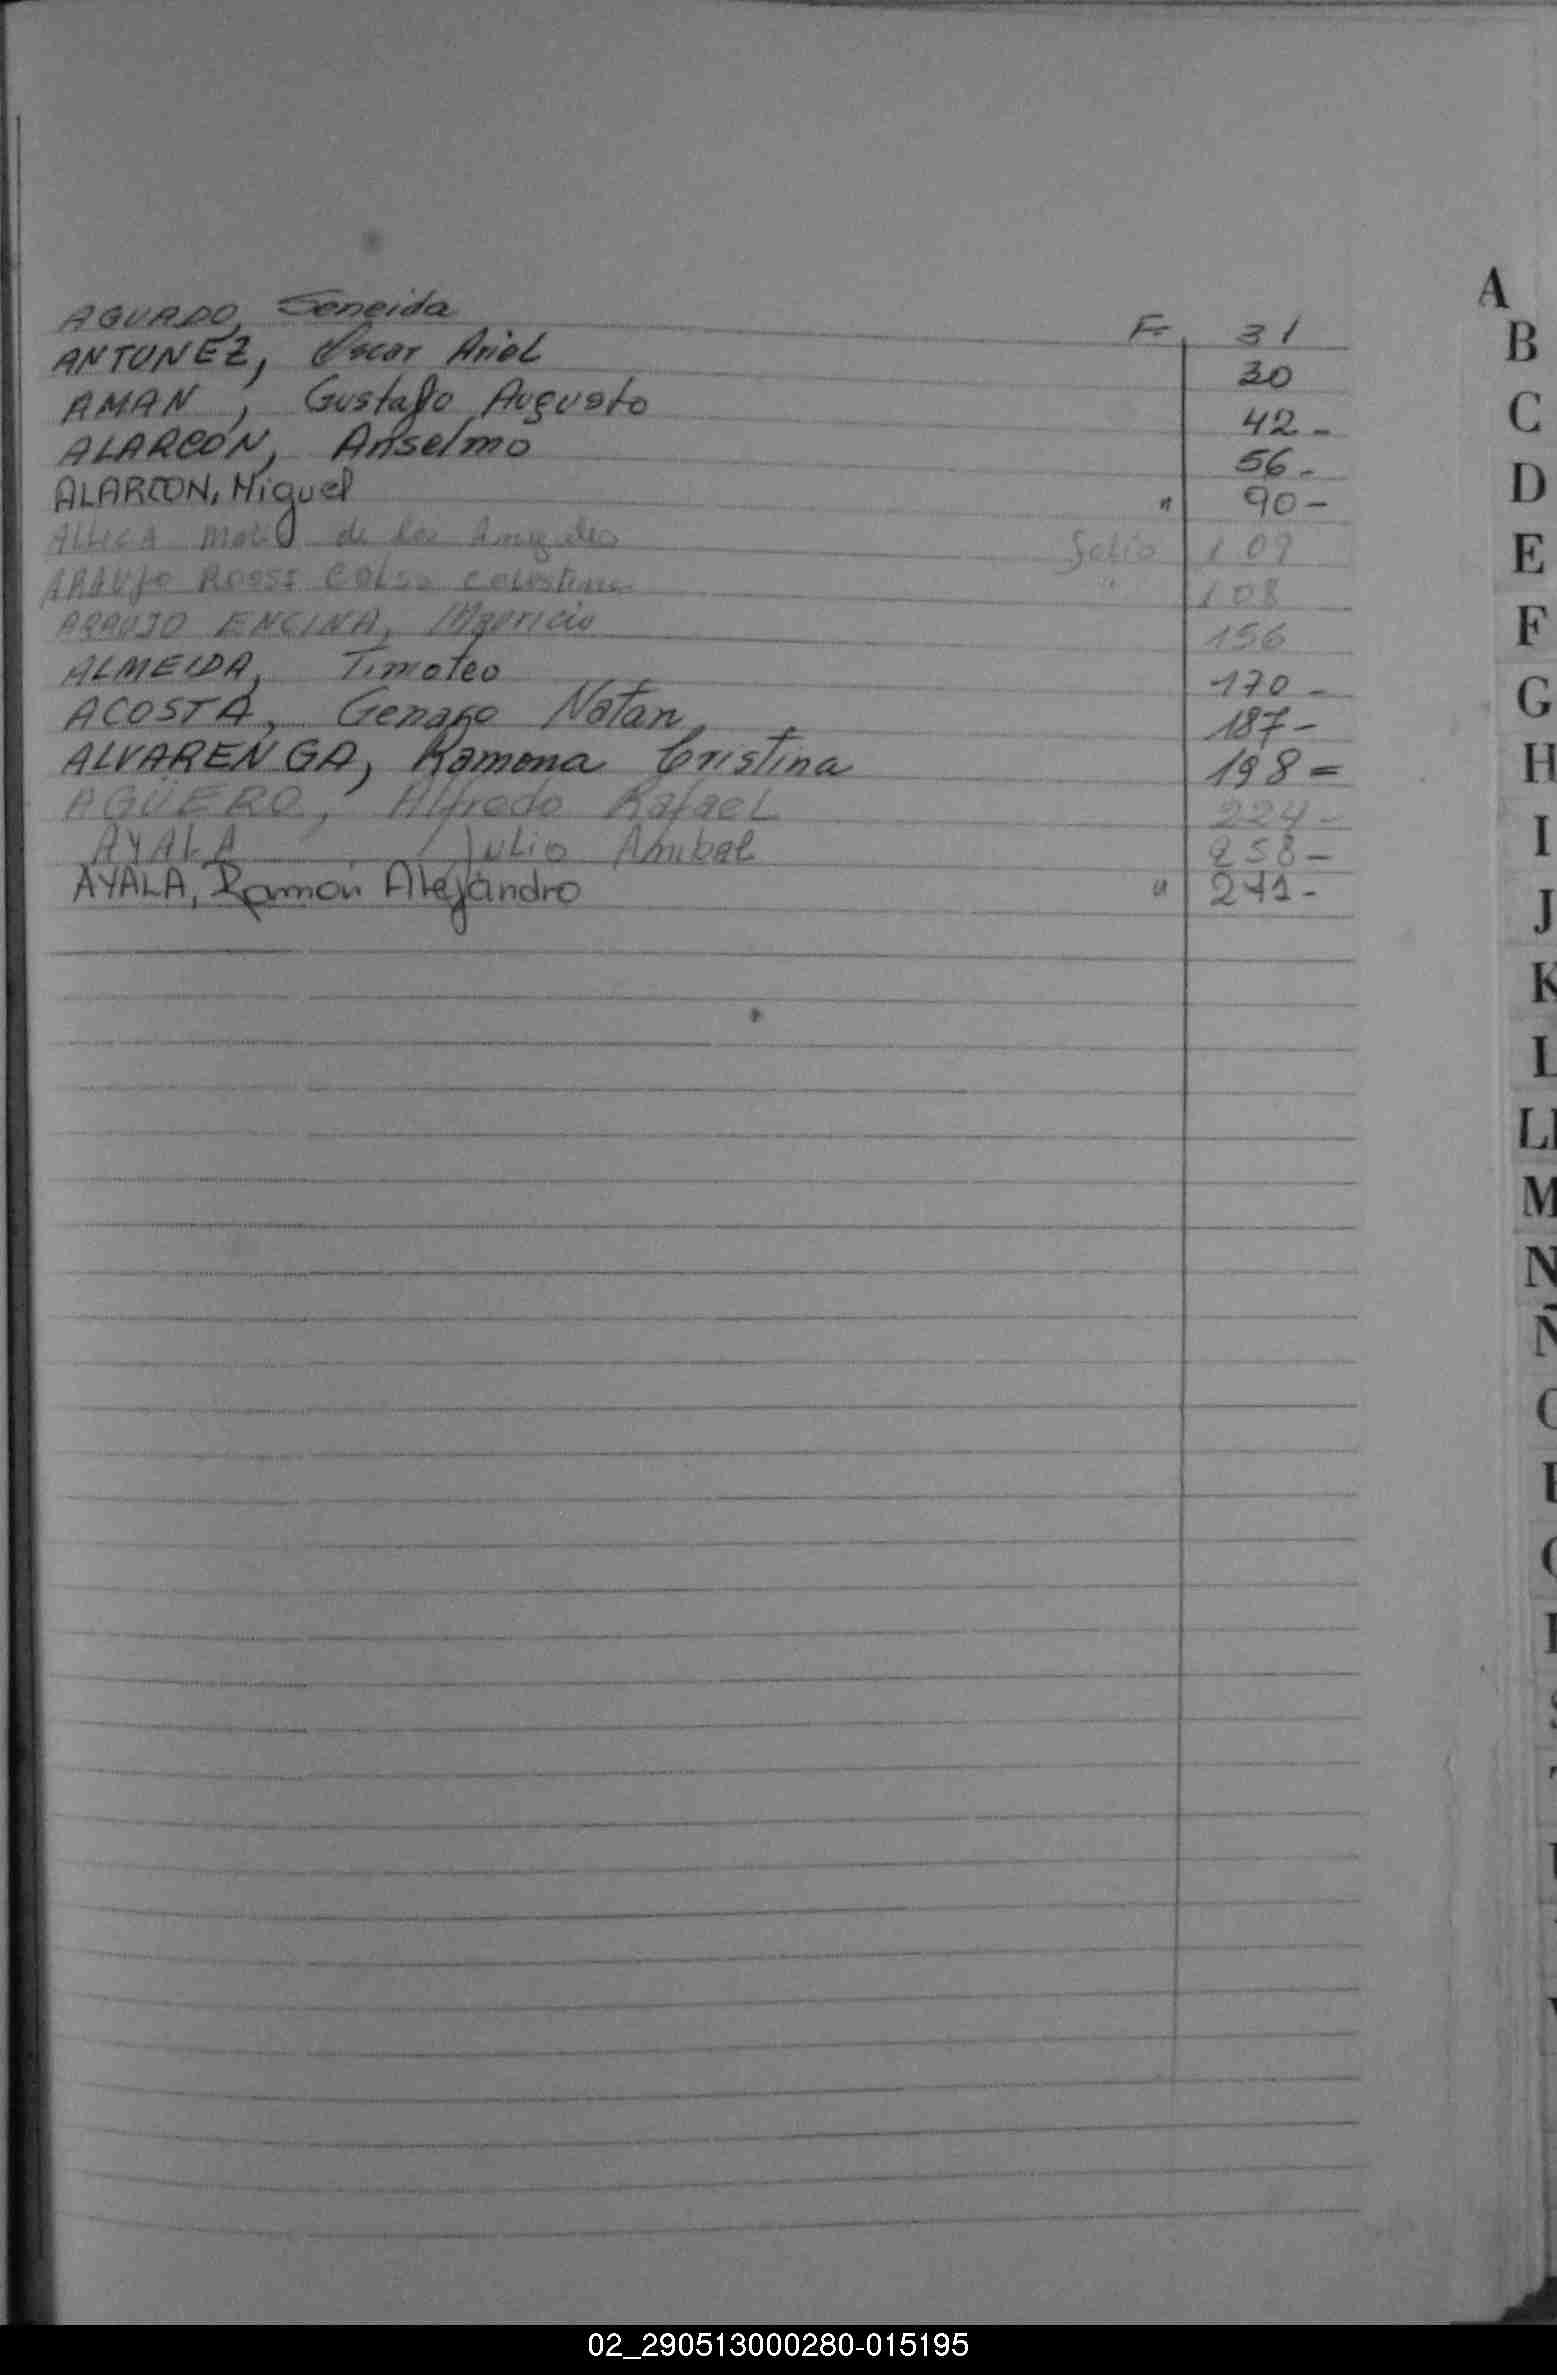 AGUADO, Seneida F. 31
ANTUNEZ, Oscar Ariel 30
AMAN, Gustavo Augusto 42-
ALARCON, Anselmo 56-
ALARCON, Miguel " 90-
de los Angeles folio 109
ARAUJO ROSSI Celso Celestino " 108
ARAUJO ENCINA, Mauricio 156
ALMEIDA, Timoteo 170-
ACOSTA, Genaro Natan 187-
ALVARENGA, Ramona Cristina 198=
AGÜERO, Alfredo Rafael 224-
AYALA Julio Anibal 258-
AYALA, Ramón Alejandro " 271-
A
B
C
D
E
F
G
H
I
J
K
L
LL
M
N
Ñ
02_290513000280-015195